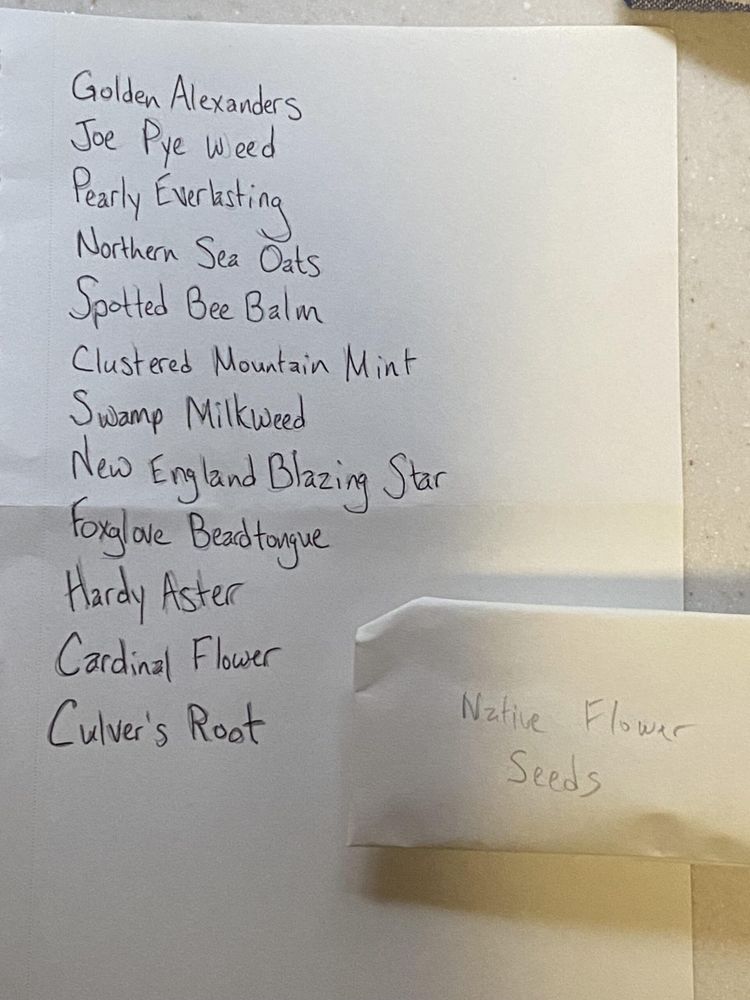 Golden Alexanders
Joe Pye Weed
Pearly Everlasting
Northern Sea Oats
Spotted Bee Balm
Clustered Mountain Mint
Swamp Milkweed
New England Blazing Star
Foxglove Beardtongue
Hardy Aster
Cardinal Flower
Culver's Root
Native Flower
Seeds